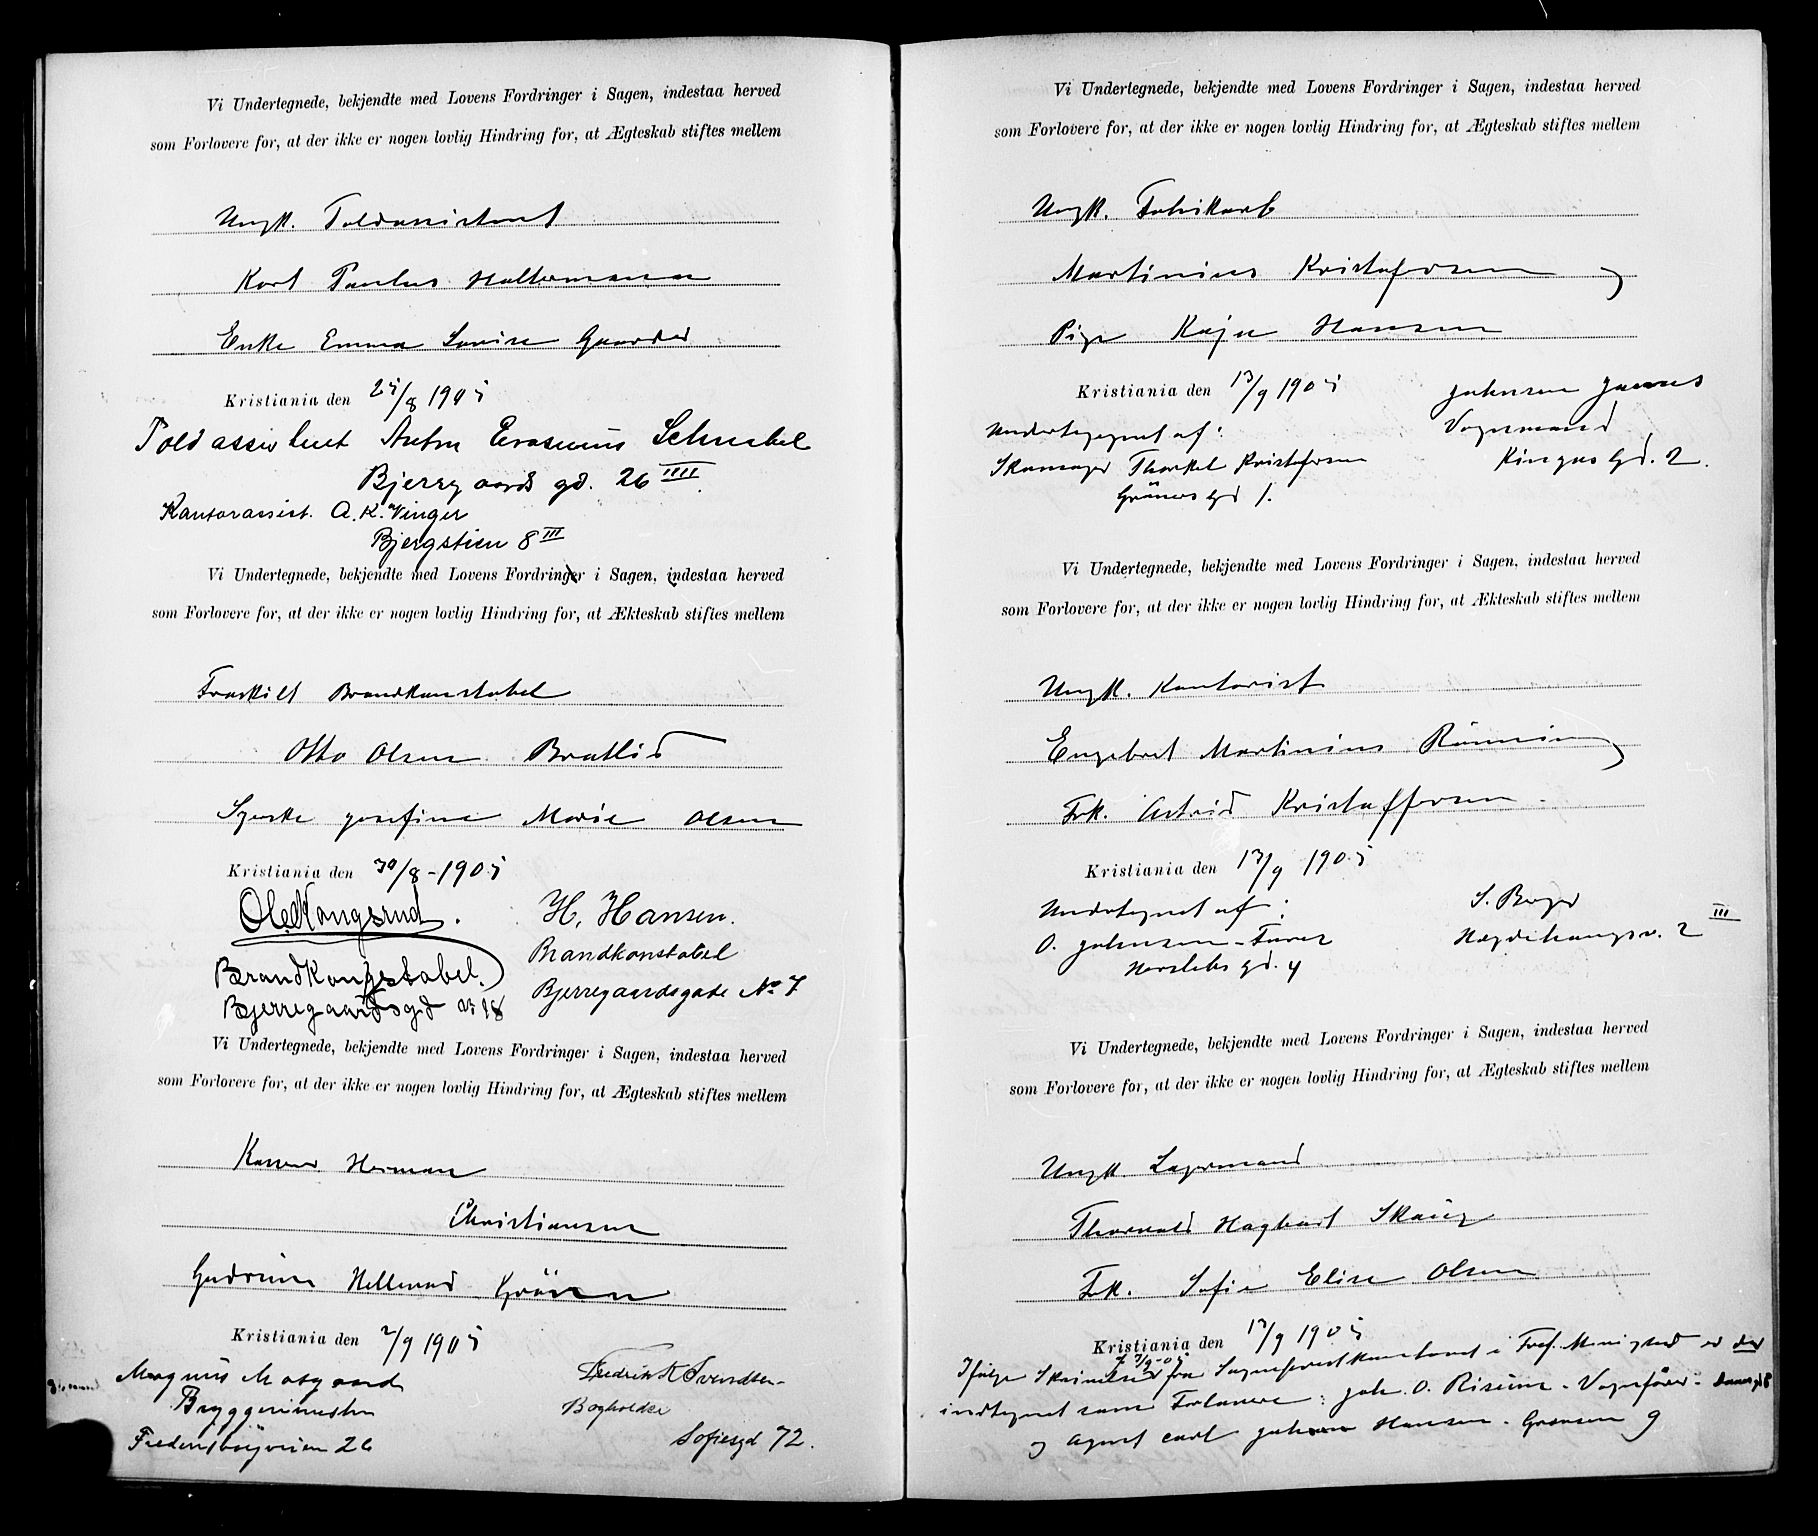 Vi Undertegnede, bekjendte med Lovens Fordringer i Sagen, indestaa herved
som Forlovere for, at der ikke er nogen lovlig Hindring for, at Ægteskab stiftes mellem
Ungk. Toldassistent
Karl Paulus Haltermann
Enke Emma Lovise Gaarder
Kristiania den 25/8 1905
Toldassistent Anton Erasmus Schnabel
Bjerregaards gd. 26 IIII
Kontorassist. A. K. Vinger
Bjergstien 8 III
Vi Undertegnede, bekjendte med Lovens Fordringer i Sagen, indestaa herved
som Forlovere for, at der ikke er nogen lovlig Hindring for, at Ækteskab stiftes mellem
Fraskilt Brandkonstabel
Otto Olsen Bratlid
Syerske Josefine Marie Olsen
Kristiania den 30/8 - 1905
Ole Kongsrud. H. Hansen.
Brandkonstabel. Brandkonstabel
Bjerregaardsgd 18 Bjerregaardsgade No 7
Vi Undertegnede, bekjendte med Lovens Fordringer i Sagen, indestaa herved
som Forlovere for, at der ikke er nogen lovlig Hindring for, at Ægteskab stiftes mellem
Herman
Christiansen
Gudrun Hellerud Grönn
Kristiania den 2/9 1905
Magnus Mosgaard Fredrik K Svendsen
Bryggerimester Bogholder
Fredensborgveien 26 Sofiesgd 72.
Vi Undertegnede, bekjendte med Lovens Fordringer i Sagen, indestaa herved
som Forlovere for, at der ikke er nogen lovlig Hindring for, at Ægteskab stiftes mellem
Ungk. Fabrikarb
Martinius Kristofersen og
Pige Kaja Hansen
Kristiania den 13/9 1905 Johnsen
Undertegnet af: Vognmand
Skomager Thorkel Kristofersen Kingos Gd. 2.
Grüners gd 1.
Vi Undertegnede, bekjendte med Lovens Fordringer i Sagen, indestaa herved
som Forlovere for, at der ikke er nogen lovlig Hindring for, at Ækteskab stiftes mellem
Ungk. Kontorist
Engebret Martinius Rönning
Frk. Astrid Kristoffersen
Kristiania den 13/9 1905
Undertegnet af: S. Berger
O. Johnsen - Hegdehaugsv. 2 III
Herslebs gd. 4
Vi Undertegnede, bekjendte med Lovens Fordringer i Sagen, indestaa herved
som Forlovere for, at der ikke er nogen lovlig Hindring for, at Ægteskab stiftes mellem
Ungk Lagermand
Thorvald Hagbart Skaug
Frk. Sofie Elise Olsen
Kristiania den 13/9 1905
Ifølge Skrivelse fra Sogneprestkontoret i Tref. Menighed er der
indtegnet som Forlovere: Joh. O. - Vognfører -
og Agent Carl Johan Hansen - Grønsen 9